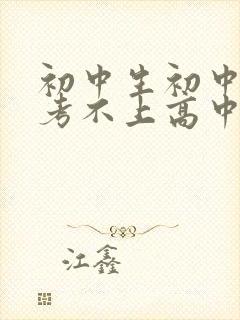 初中生初中
考不上高中
江鑫